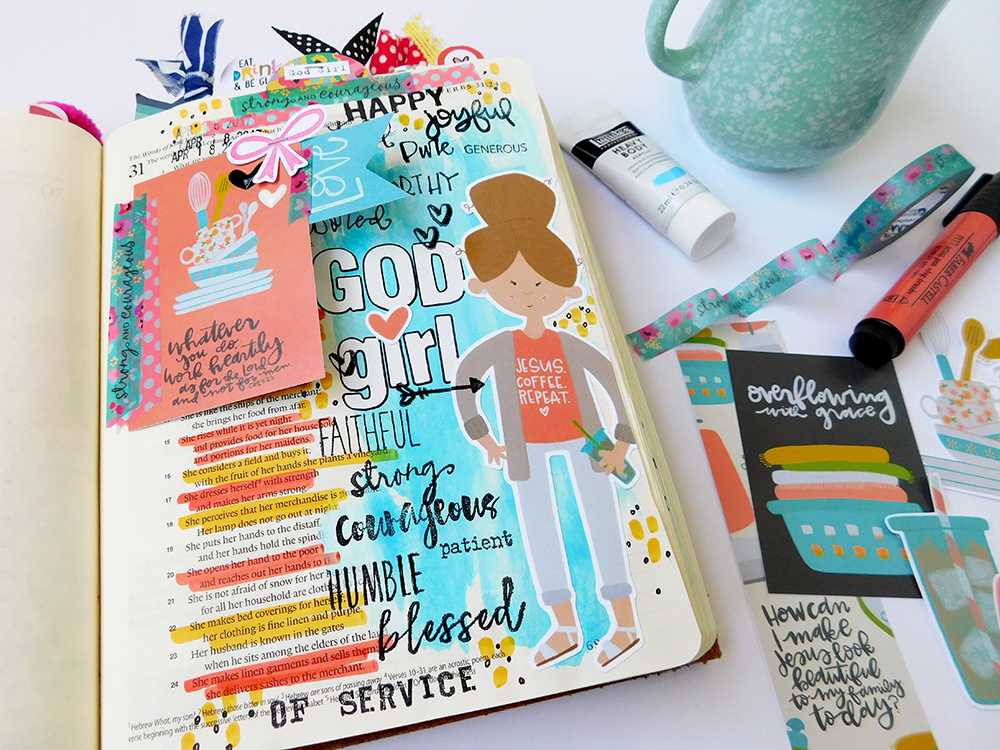 EAT,
Drink
& BE
God Girl
strong AND courageous
HAPPY
joyful
Pure
GENEROUS
love
GOD
girl
FAITHFUL
strong
courageous
patient
HUMBLE
blessed
OF SERVICE
APR 18
31
The Words of
strong AND courageous
whatever
you do,
work heartily
as for the Lord
and not for men
JESUS.
COFFEE.
REPEAT.
She is like the ships of the merchant;
she brings her food from afar.
15 She rises while it is yet night
and provides food for her household
and portions for her maidens.
16 She considers a field and buys it;
with the fruit of her hands she plants a vineyard.
17 She dresses herself with strength
and makes her arms strong.
18 She perceives that her merchandise is
Her lamp does not go out at night.
19 She puts her hands to the distaff,
and her hands hold the
20 She opens her hand to the poor
and reaches out her hands to
21 She is not afraid of snow for her
for all her household are
22 She makes bed coverings for
her clothing is fine linen and purple.
23 Her husband is known in the gates
when he sits among the elders of the
24 She makes linen garments and sells them;
she delivers sashes to the merchant.
Verses 10–31 are an acrostic poem, each
verse beginning with the successive letters of the
Liquitex
HEAVY
BODY
strong AND courageous
FABER-CASTELL
overflowing
with grace
How can
I make
Jesus look
beautiful
to my family
today?